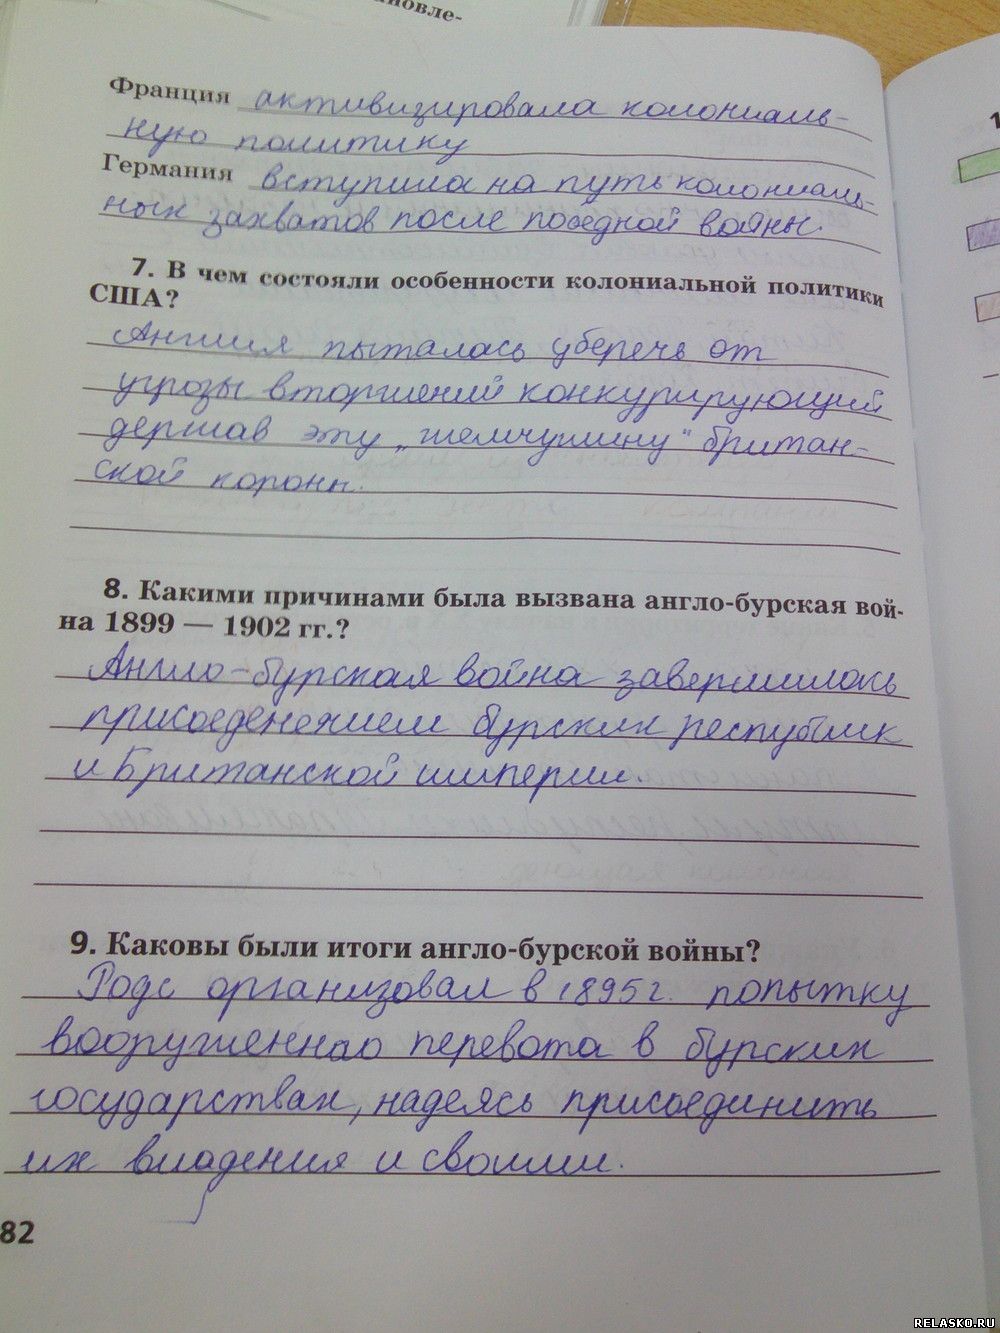 новле-
Франция активизировала колониаль-
ную политику
Германия вступила на путь колониаль-
ных захватов после поседной войны.
7. В чем состояли особенности колониальной политики
США?
Англия пыталась уберечь от
угрозы вторжений конкурирующий
держав эту „жемчужину" британ-
ской короны.
8. Какими причинами была вызвана англо-бурская вой-
на 1899 — 1902 гг.?
Англо-бурская война завершилась
присоеденением бурских республик
и Британской империи.
9. Каковы были итоги англо-бурской войны?
Родс организовал в 1895 г. попытку
вооружённао перевота в бурских
государствах, надеясь присоединить
их владения и своими.
82
1
RELASKO.RU